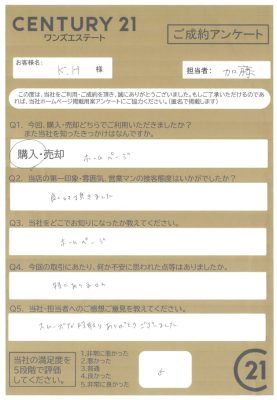 CENTURY 21
ワンズエステート
ご成約アンケート
お客様名:
K.H 様
担当者: 加藤
この度は、当社をご利用・ご成約を頂き、誠にありがとうございました。もしご了承いただけるのであれ
ば、当社ホームページ掲載用案アンケートにご協力ください。(匿名で掲載します)
Q1. 今回、購入・売却どちらでご利用いただきましたか?
また当社を知ったきっかけはなんですか。
購入・売却 ホームページ
Q2. 当店の第一印象・雰囲気、営業マンの接客態度はいかがでしたか?
頂きました
Q3. 当社をどこでお知りになったか教えてください。
ホームページ
Q4. 今回の取引にあたり、何か不安に思われた点等はありましたか。
特にありません
Q5. 当社・担当者へのご感想ご意見を教えてください。
スムーズな対応ありがとうございました
当社の満足度を
5段階で評価
してください。
1.非常に悪かった
2.悪かった
3.普通
4.良かった
5.非常に良かった
5
21